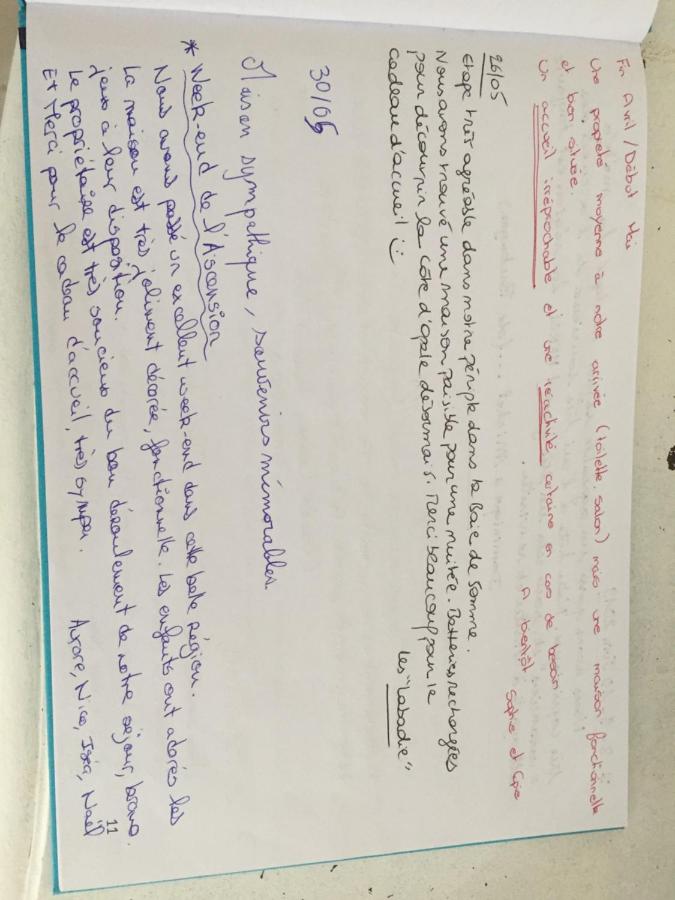 Fin Avril / Début Mai
Une propreté moyenne à notre arrivée (toilette, salon) mais une maison fonctionnelle
et bien située.
Un accueil irréprochable et une réactivité certaine en cas de besoin
A bientôt Sophie et
26/05
Etape très agréable dans notre périple dans la Baie de Somme.
Nous avons trouvé une maison paisible pour une nuitée. Batteries rechargées
pour découvrir la côte d'opale désormais. Merci beaucoup pour le
cadeau d'accueil :)
Les "Labadie"
30/05
Maison sympathique, souvenirs mémorables
* Week-end de l'Ascension
Nous avons passé un excellent week-end dans cette belle région.
La maison est très joliment décorée, fonctionnelle. Les enfants ont adorés les
jeux à leur disposition.
Le propriétaire est très soucieux du bon déroulement de notre séjour, bravo.
Et Merci pour le cadeau d'accueil, très sympa.
Aurore, Nico, Naël
11